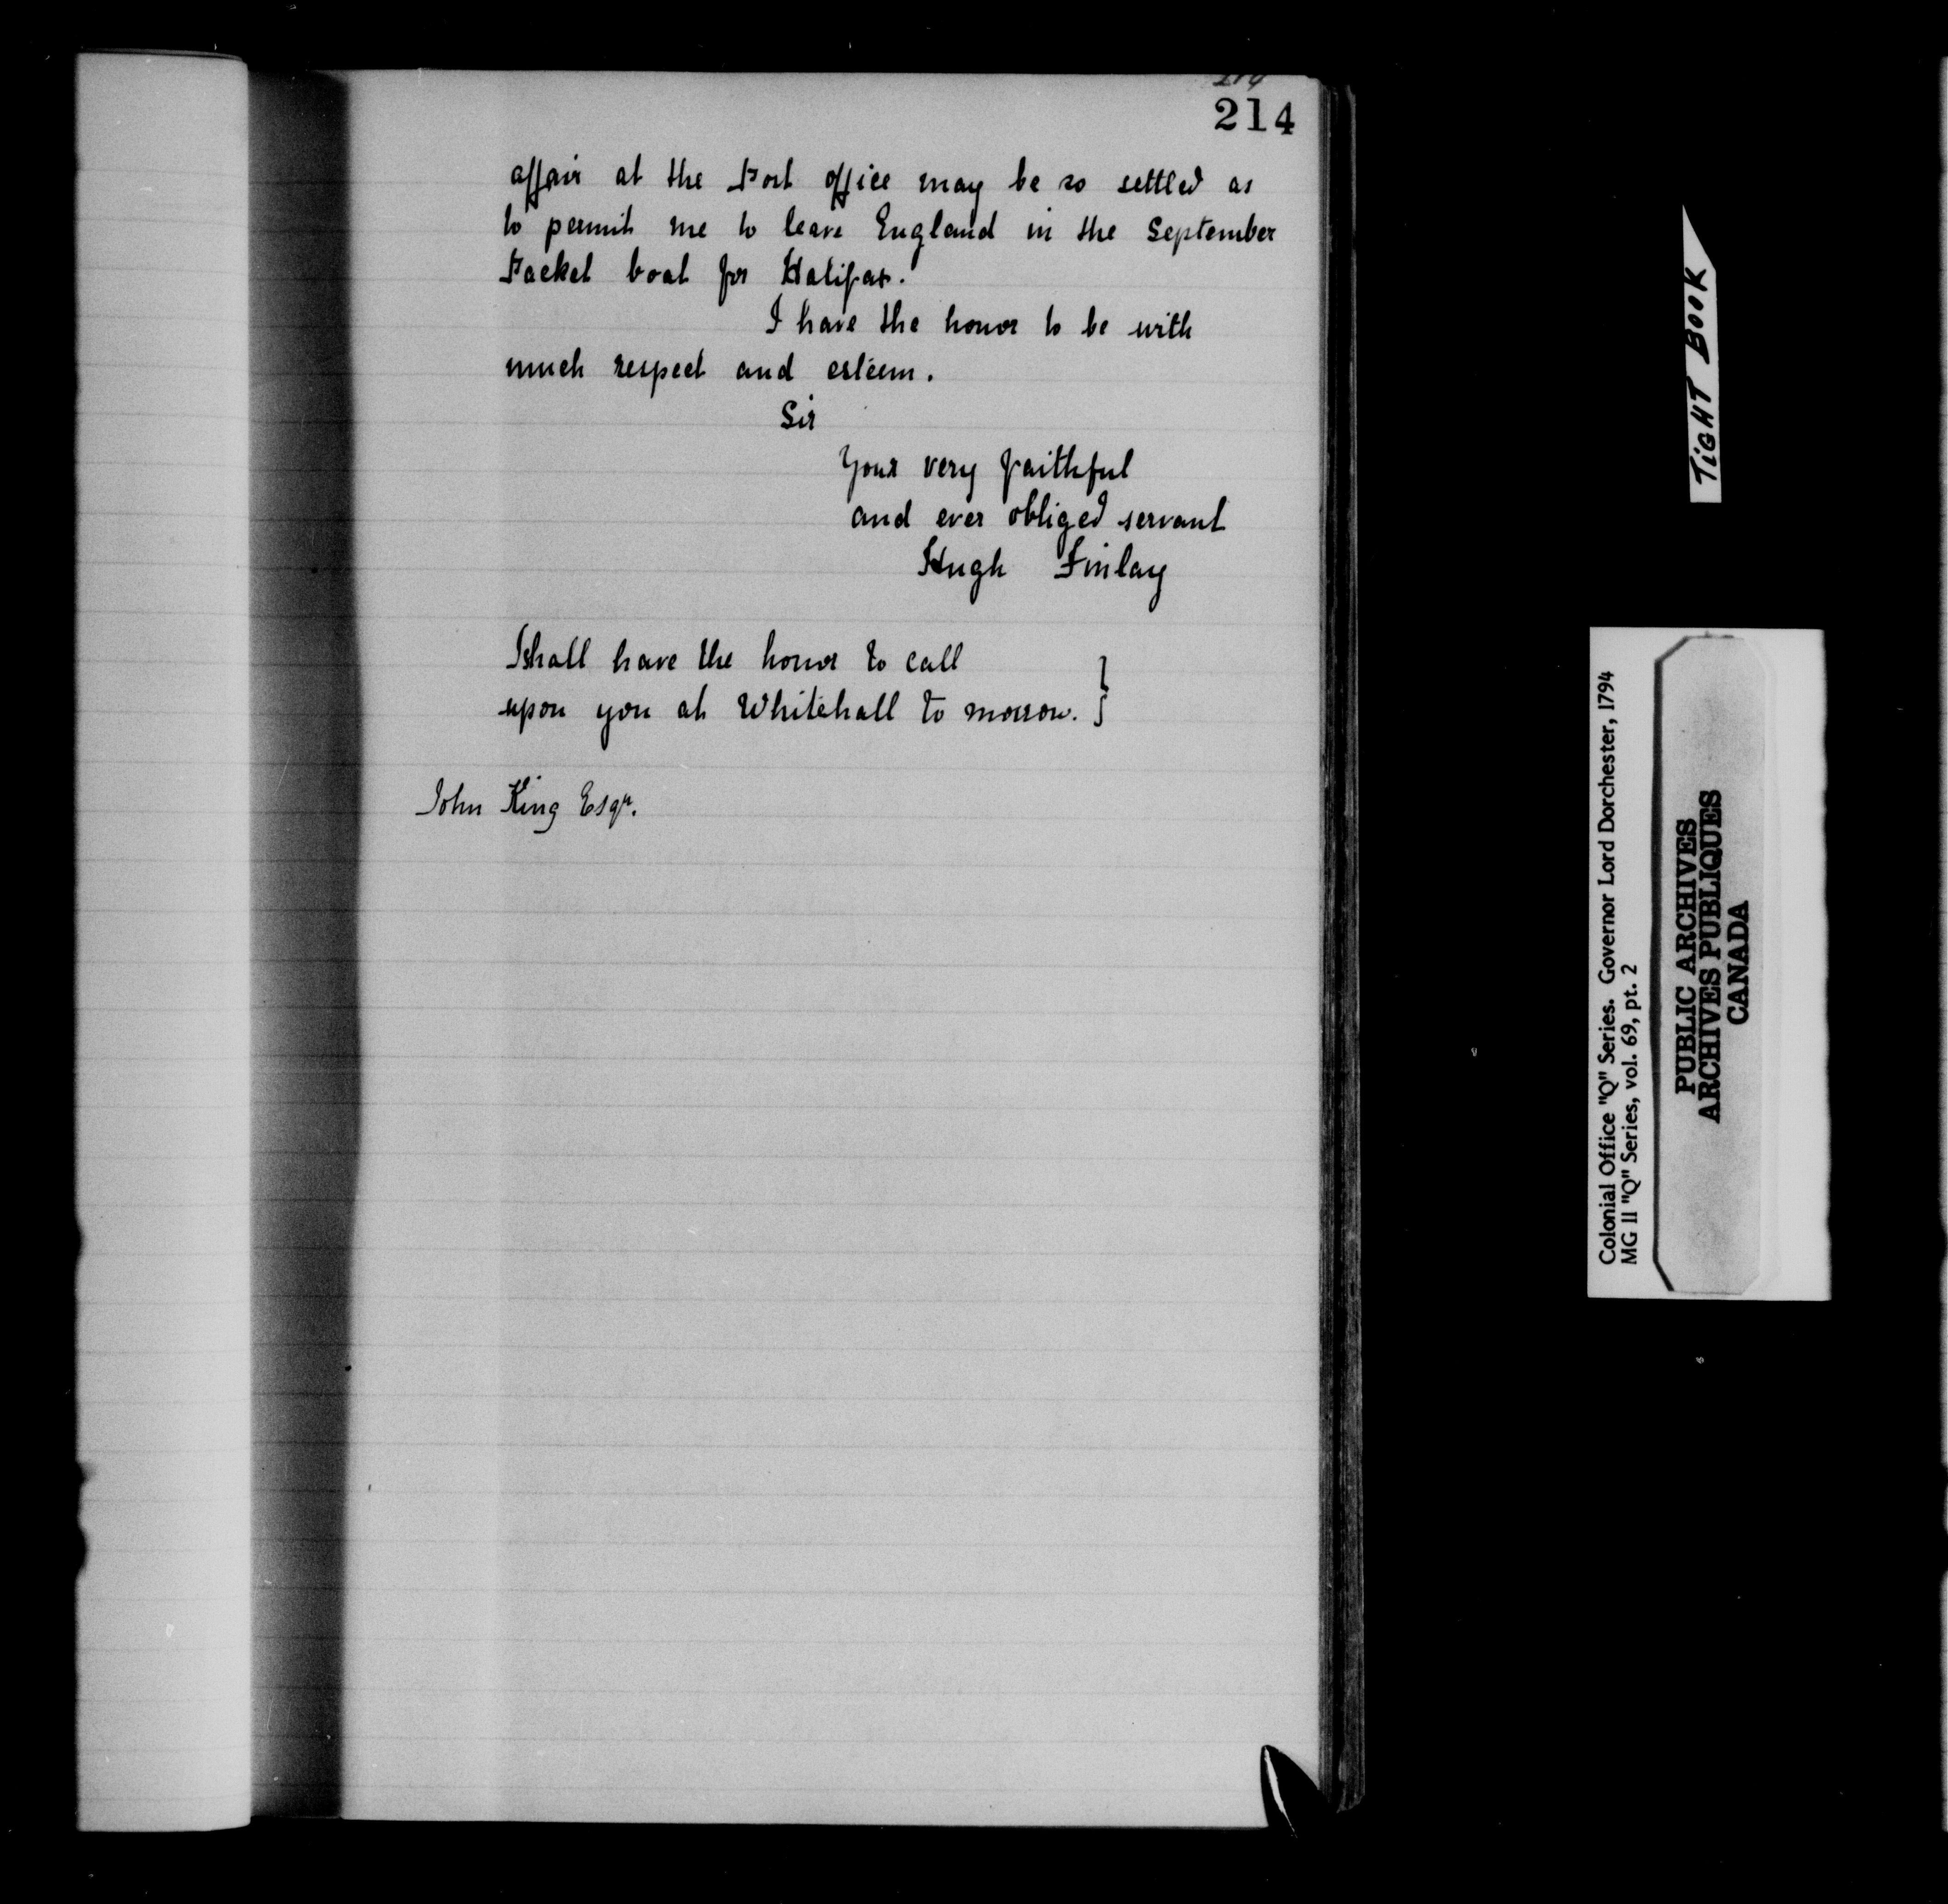 214
affair at the Post office may be so settled as
to permit me to leave England in the September
Packet boat for Halifax.
I have the honor to be with
much respect and esteem.
Sir
Your very faithful
and ever obliged servant
Hugh Finlay
I shall have the honor to call
upon you at Whitehall to morrow. }
John King Esqr.
TIGHT BOOK
Colonial Office "Q" Series. Governor Lord Dorchester, 1794
MG 11 "Q" Series, vol. 69, pt. 2
PUBLIC ARCHIVES
ARCHIVES PUBLIQUES
CANADA